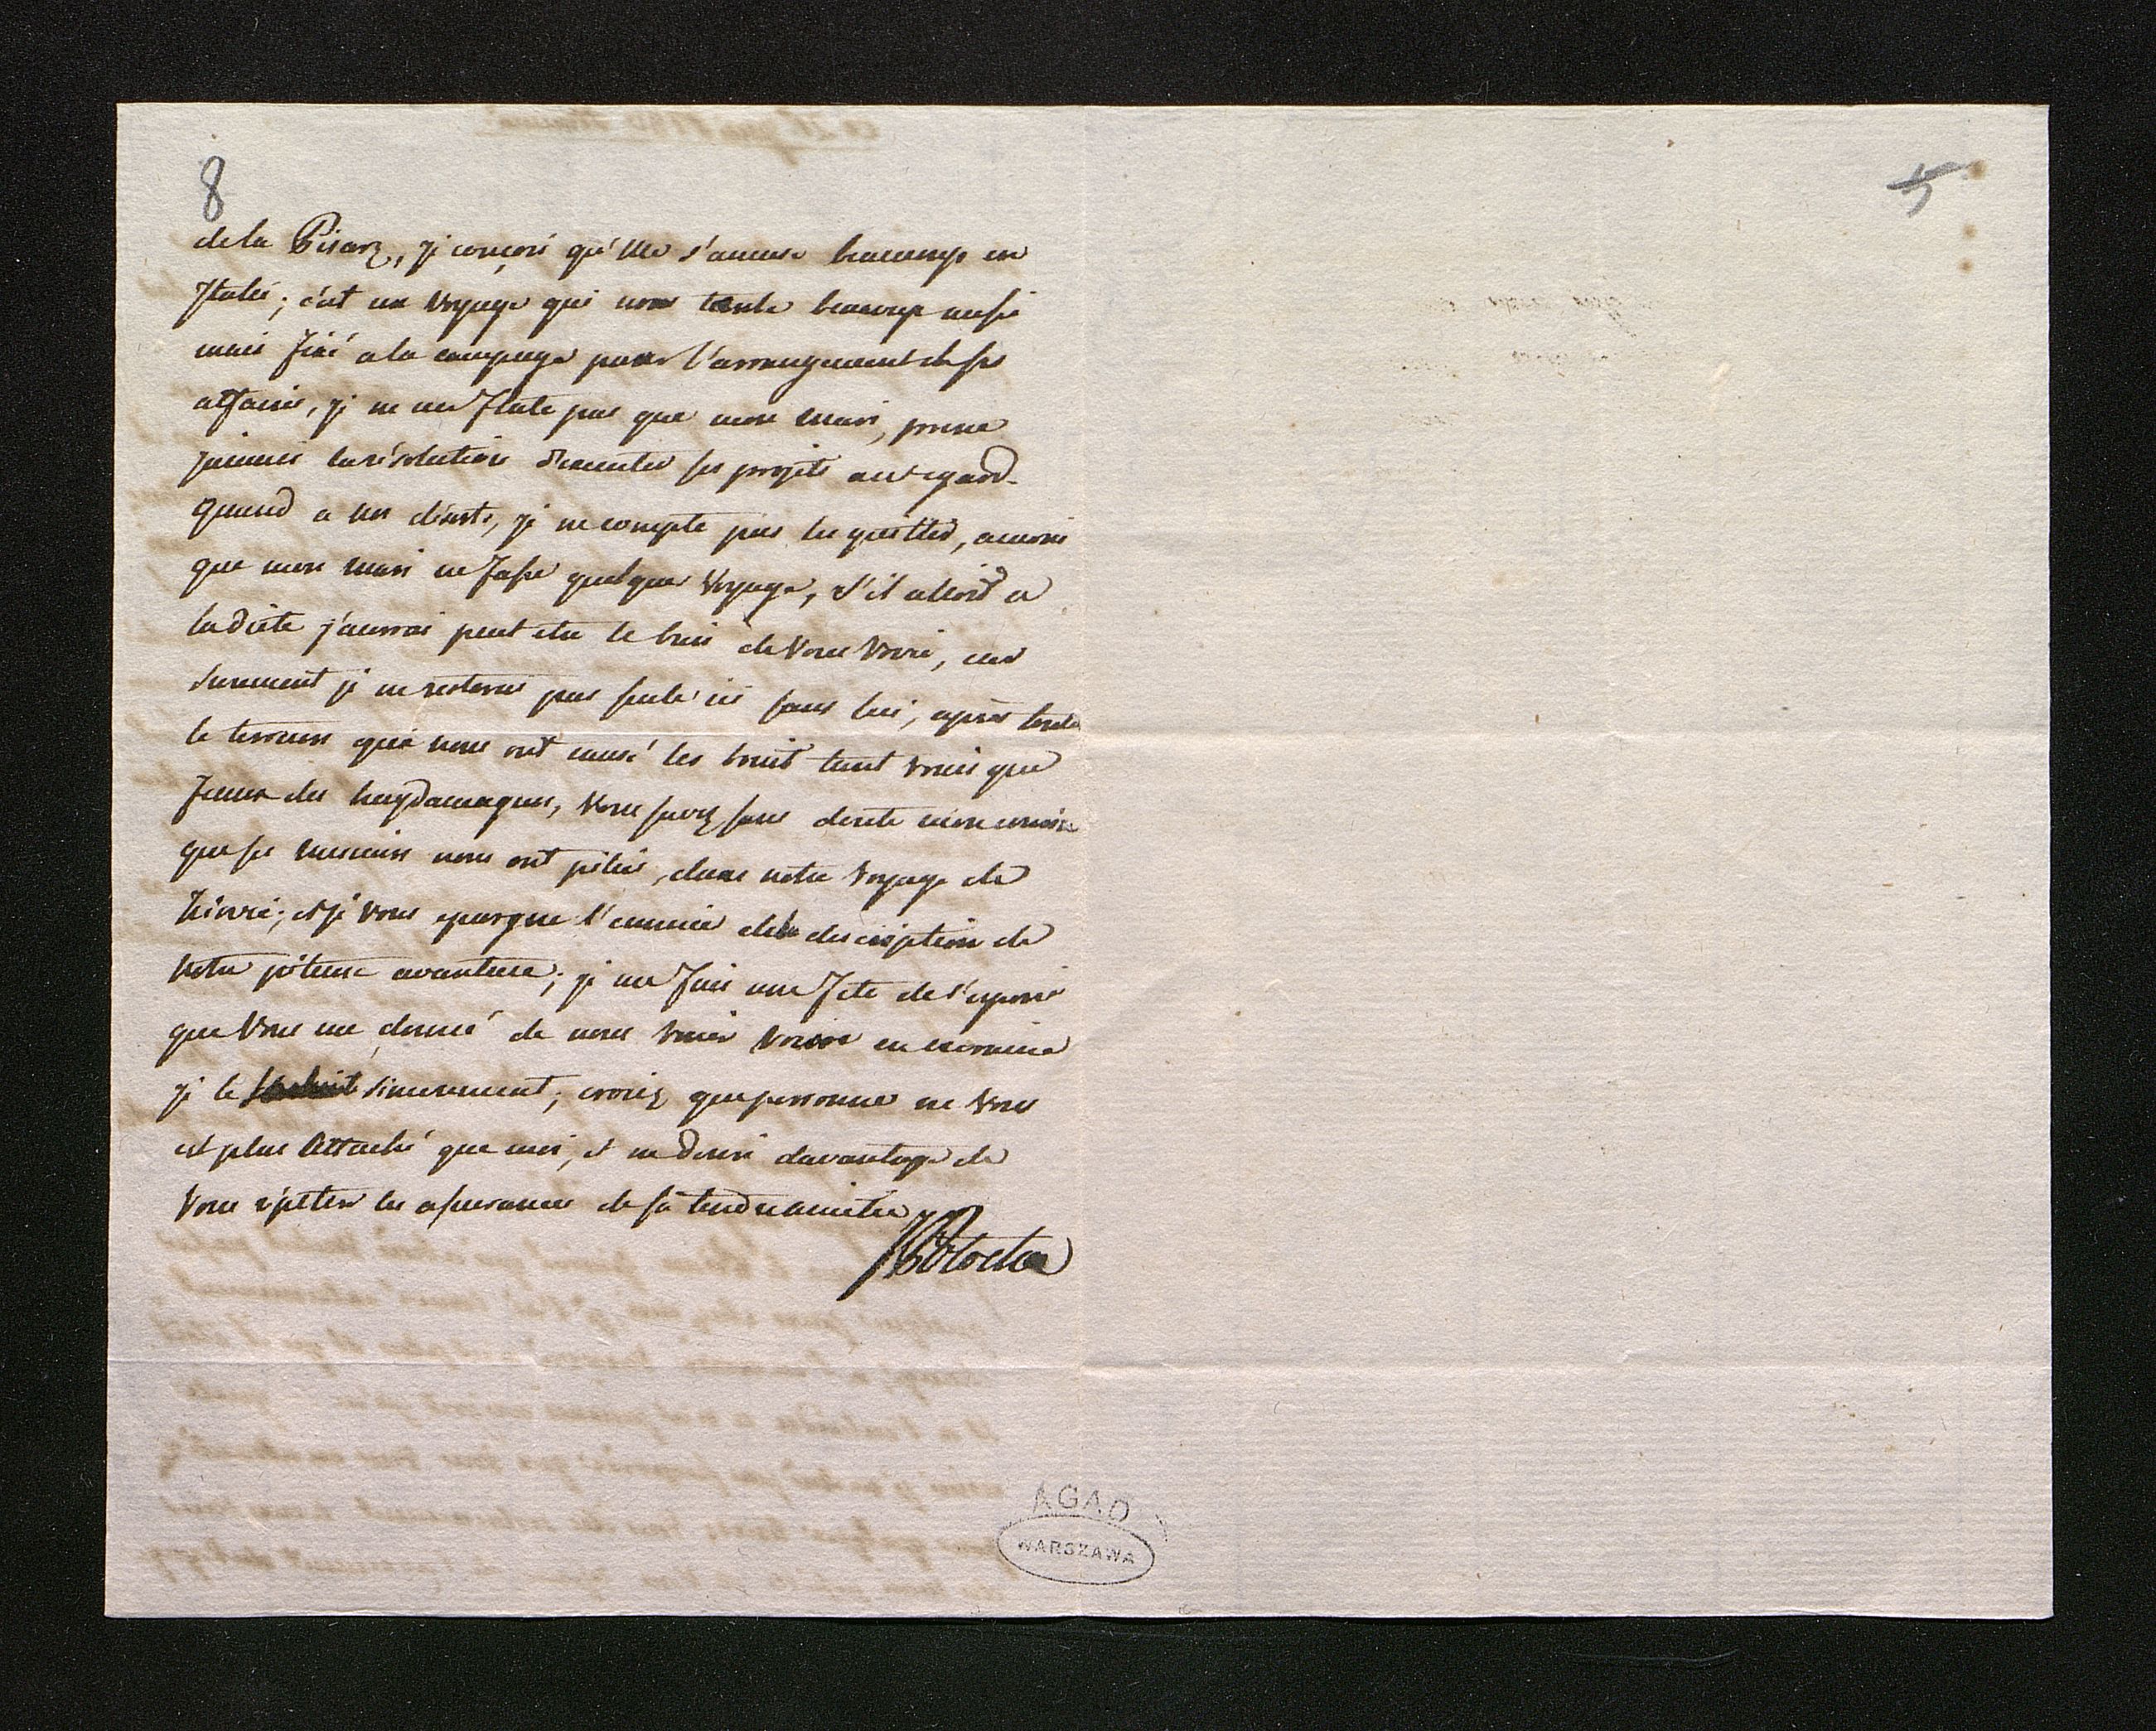 8
5
de la Pisarz, je conçois qu'elle s'amuse beaucoup en
Italie; c'est un voyage qui nous tente beaucoup aussi
mais fixé a la campagne pour l'arrangement de ses
affaires, je ne me flate pas que mon mari, prene
jamais la résolution d'executer ses projets a cet egard.
quand a nos déserts, je ne compte pas les quitter, a moins
que mon mari ne fasse quelque voyage, s'il alloit a
la diete j'aurrai peut etre le bien de vous voire, car
surement je ne resterai pas seule ici sans lui, après toute
le terreurs que nous ont causé les bruit tant vrais que
faux des haydamaques, vous savez sans doute mon
que ses messieurs nous ont pillés, dans notre voyage de
et je vous epargne l'ennuie de la description de
notre piteuse avanture; je me fais une fete de l'espoir
que vous me donné de nous venir voire en
je le souhait sincerement; croiez que personne ne vous
est plus attaché que moi, et ne desire davantage de
vous répeter les assurances de sa tendre amitie
Potocka
AGAD
WARSZAWA